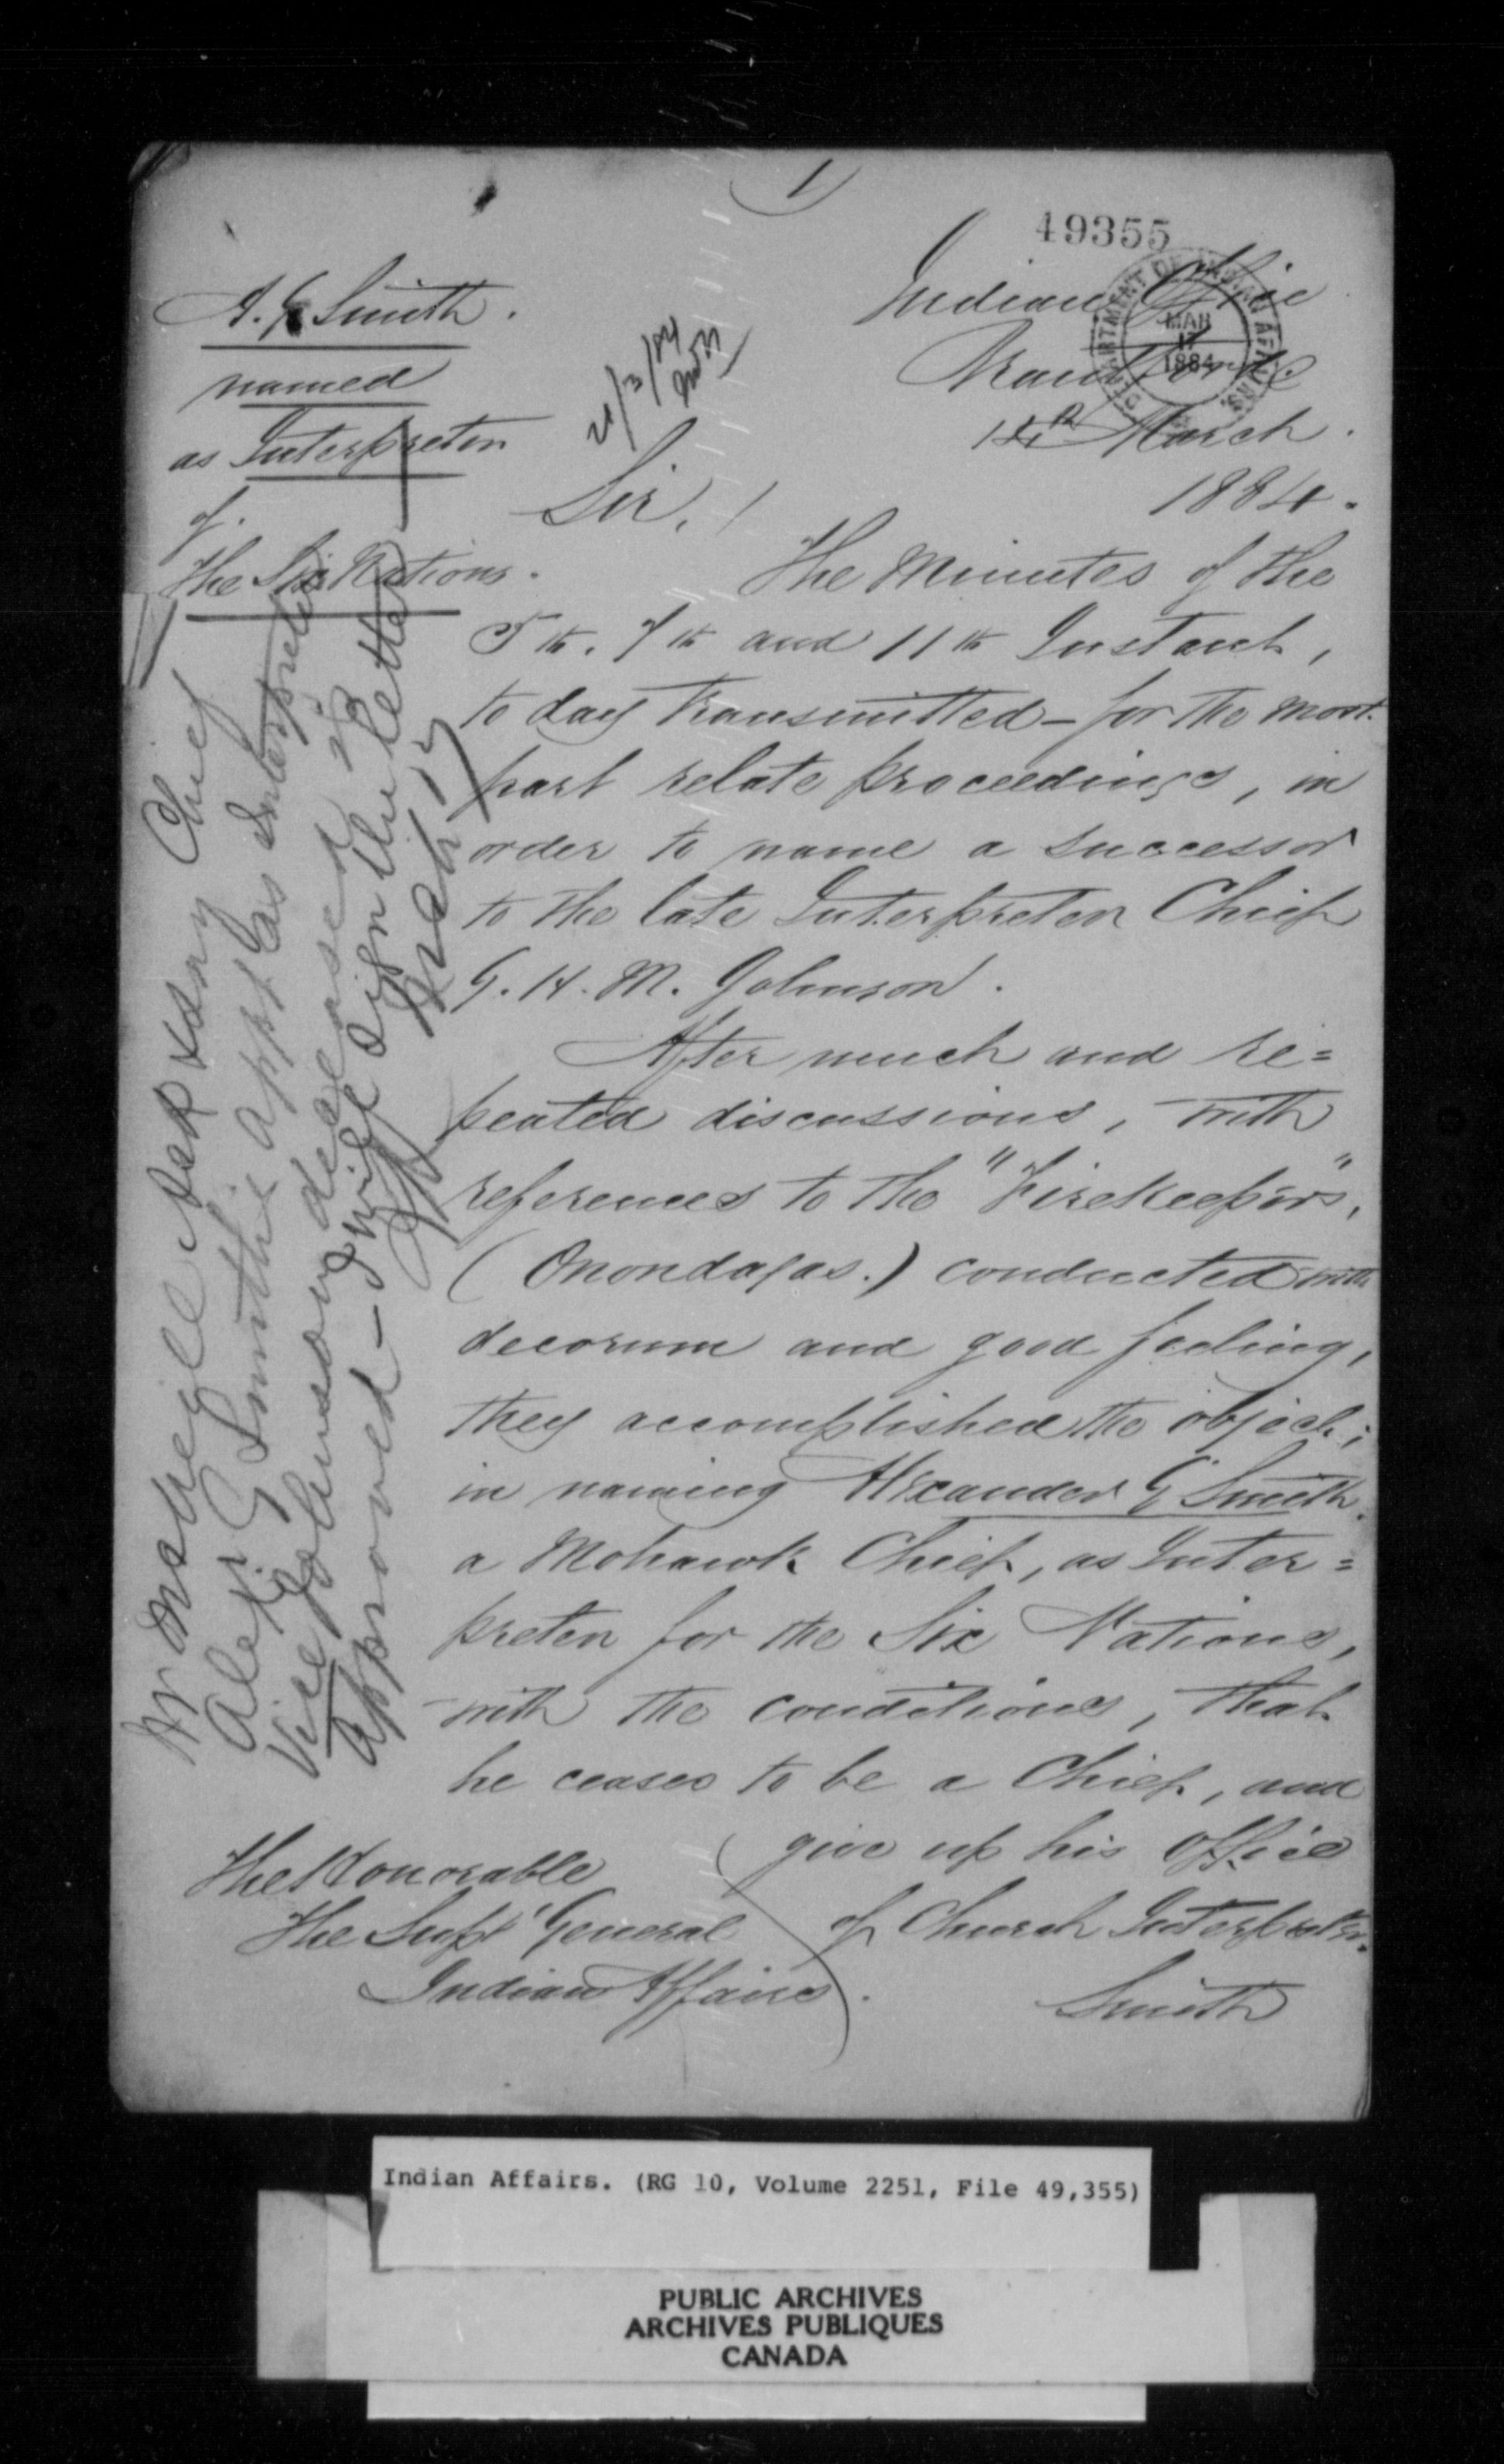 1
49355
DEPARTMENT OF INDIAN AFFAIRS
MAR
17
1884
Indian Office
Brantford
14th March.
1884.
A. G Smith.
named
as Interpreter
of.
the Six Nations.
21/3/84
Sir,
The Minutes of the
5th. 7th and 11th Instant,
to day transmitted – for the most
part relate proceedings, in
order to name a successor
to the late Interpreter Chief
G. H. M. Johnson.
After much and re=
peated discussions, with
references to the "Firekeepers",
(Onondagas.) conducted with
decorum and good feeling,
they accomplished the object;
in naming Alexander G Smith.
a Mohawk Chief, as Inter=
preter for the Six Nations,
with the conditions, that
he ceases to be a Chief, and
give up his Office
of Church Interpreter.
Smith
The Honorable
The Supt General
Indian Affairs.
Chief
Alexr G Smith's appt as Interpreter
Vice Johnson deceased is
approved – I will sign the letter
Indian Affairs. (RG 10, Volume 2251, File 49,355)
PUBLIC ARCHIVES
ARCHIVES PUBLIQUES
CANADA